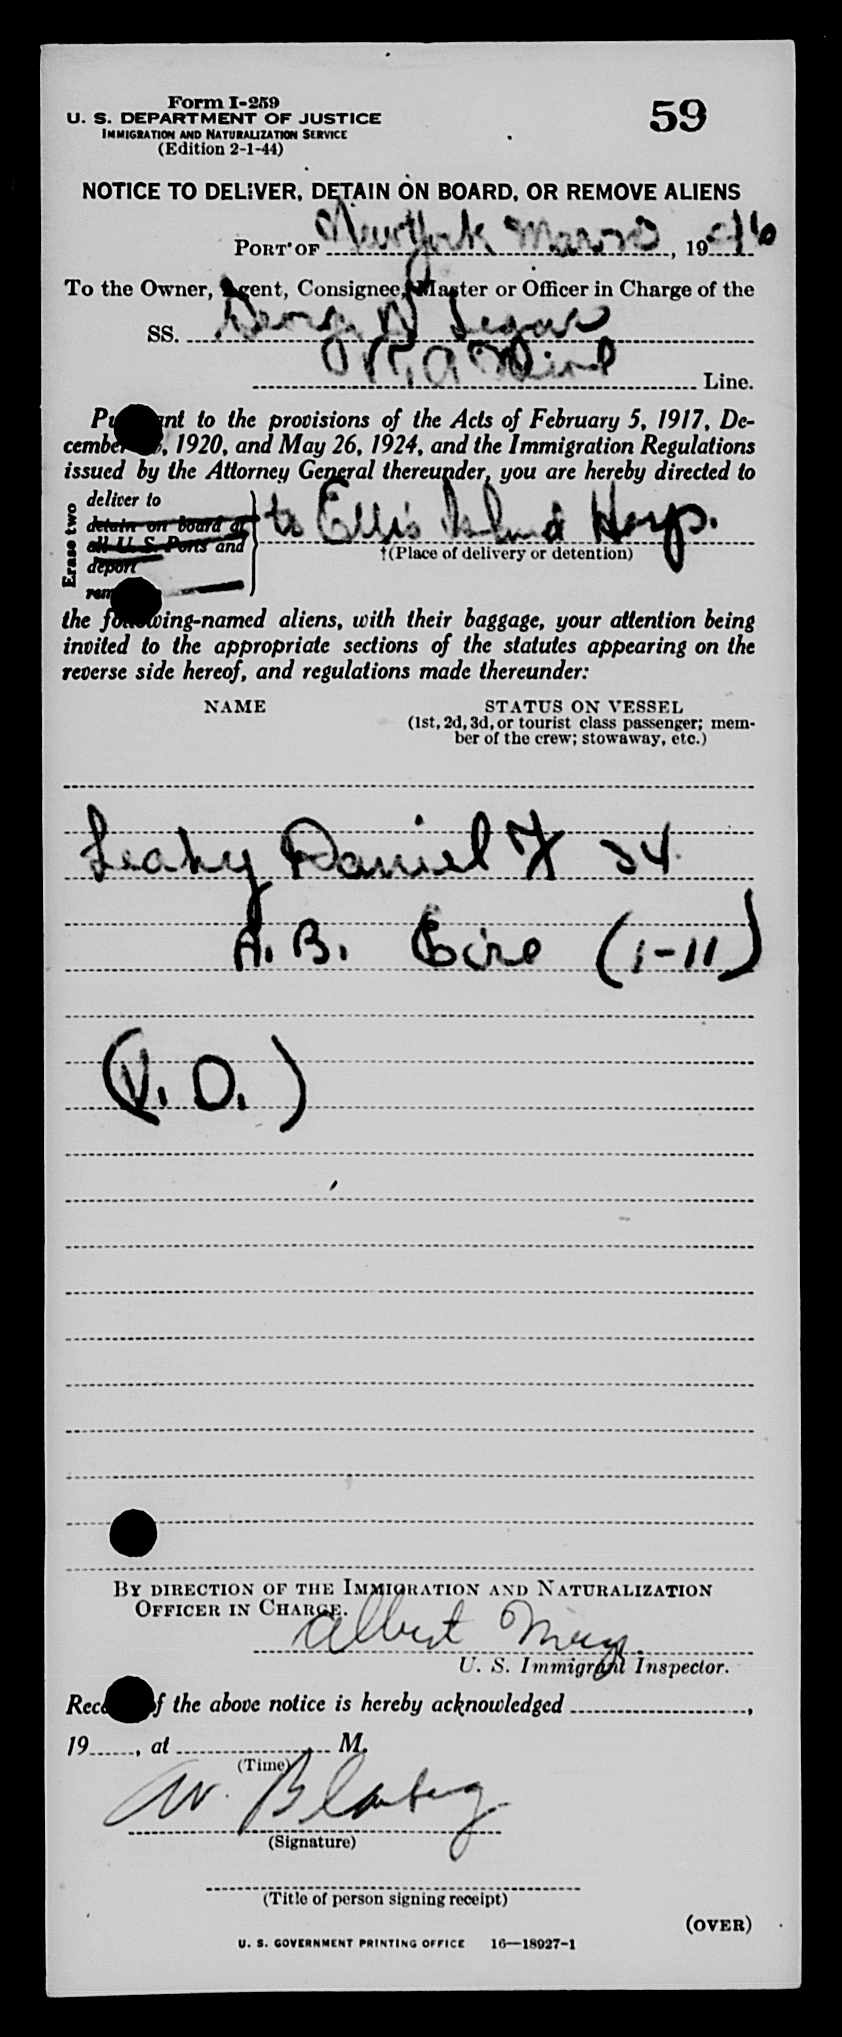 Form I-259
59
U. S. DEPARTMENT OF JUSTICE
IMMIGRATION AND NATURALIZATION SERVICE
(Edition 2-1-44)
NOTICE TO DELIVER, DETAIN ON BOARD, OR REMOVE ALIENS
PORT OF New York, 19
To the Owner, Agent, Consignee, Master or Officer in Charge of the
SS.
Line.
Pursuant to the provisions of the Acts of February 5, 1917, De-
cember, 1920, and May 26, 1924, and the Immigration Regulations
issued by the Attorney General thereunder, you are hereby directed to
Erase two
deliver to
detain on board at
all U. S. Ports and
deport
to Ellis Island Hosp.
†(Place of delivery or detention)
the following-named aliens, with their baggage, your attention being
invited to the appropriate sections of the statutes appearing on the
reverse side hereof, and regulations made thereunder:
NAME
STATUS ON VESSEL
(1st, 2d, 3d, or tourist class passenger; mem-
ber of the crew; stowaway, etc.)
Leahy Daniel F 24
A. B. Eire (1-11)
(V. D.)
BY DIRECTION OF THE IMMIGRATION AND NATURALIZATION
OFFICER IN CHARGE.
Albert
U. S. Immigrant Inspector.
Receipt of the above notice is hereby acknowledged,
19, at M.
(Time)
W.
(Signature)
(Title of person signing receipt)
(OVER)
U. S. GOVERNMENT PRINTING OFFICE 16—18927-1